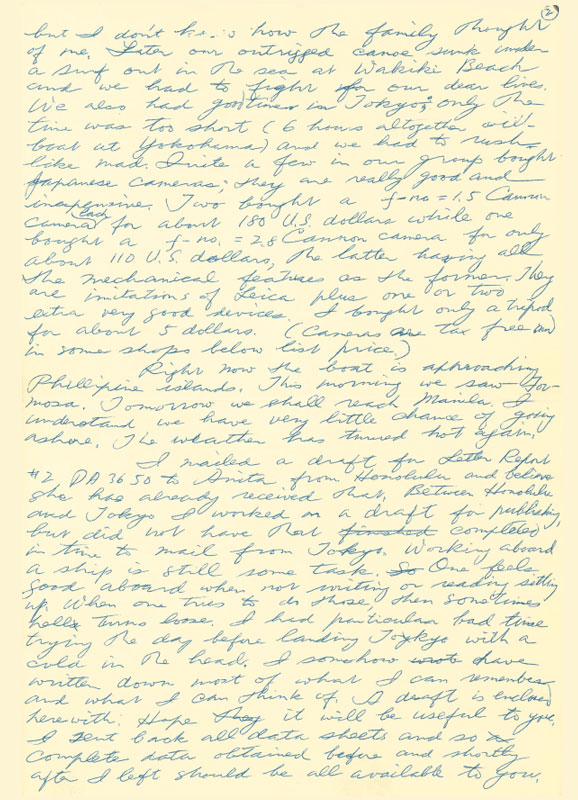 2
but I don't know how the family thought
of me. Later our outrigged canoe sunk under
a surf out in the sea at Waikiki Beach
and we had to fight for our dear lives.
We also had good times in Tokyo; only the
time was too short (6 hours altogether will
boat at Yokohama) and we had to rush
like mad. Quite a few in our group bought
Japanese cameras; they are really good and
inexpensive. Two bought a f-no = 1.5 Cannon
camera each for about 180 U.S. dollars while one
bought a f-no. = 2.8 Cannon camera for only
about 110 U.S. dollars, the latter having all
the mechanical features as the former. They
are imitations of Leica plus one or two
extra very good devices. I bought only a tripod
for about 5 dollars. (Cameras are tax free and
in some shops below list price.)
Right now the boat is approaching
Phillipine islands. This morning we saw For-
mosa. Tomorrow we shall reach Manila. I
understand we have very little chance of going
ashore. The weather has turned hot again.
I mailed a draft for Letter Report
#2 DA3650 to Anita from Honolulu and believe
she has already received that. Between Honolulu
and Tokyo I worked on a draft for publishing,
but did not have that finished completed
in time to mail from Tokyo. Working aboard
a ship is still some task. So One feels
good aboard when not writing or reading sitting
up. When one tries to do those, then sometimes
hell turns loose. I had particular bad time
trying the day before landing Tokyo with a
cold in the head. I somehow wrote have
written down most of what I can remember
and what I can think of. A draft is enclosed
herewith. Hope they it will be useful to you.
I sent back all data sheets and so
complete data obtained before and shortly
after I left should be all available to you.